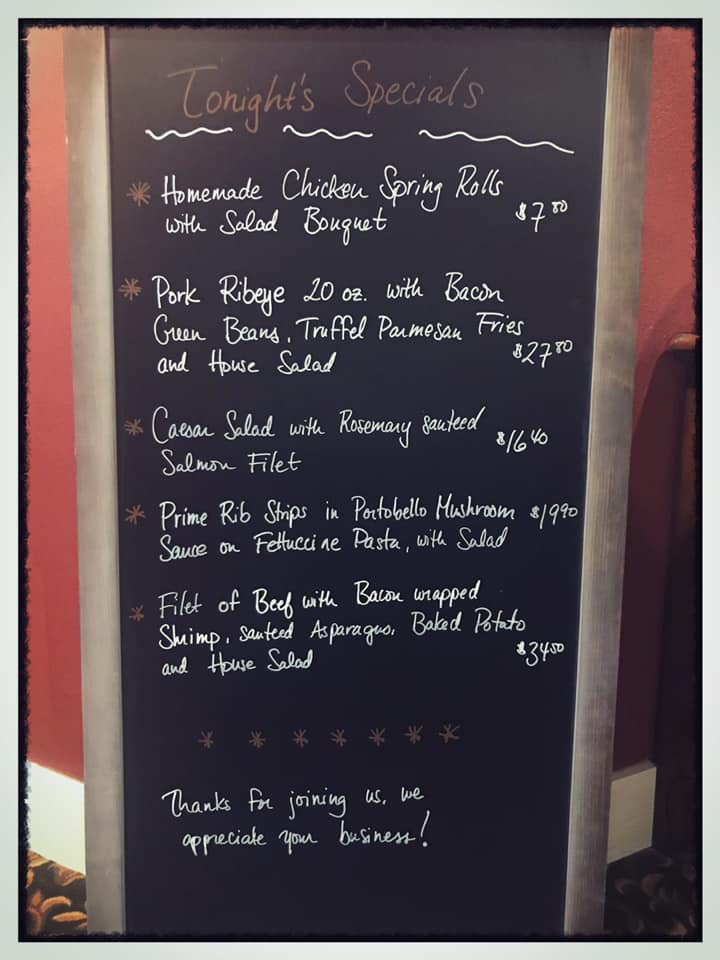 Tonight's Specials
* Homemade Chicken Spring Rolls
with Salad Bouquet $7.80
* Pork Ribeye 20 oz. with Bacon
Green Beans, Truffel Parmesan Fries
and House Salad $27.80
* Caesar Salad with Rosemary sauteed
Salmon Filet $16.40
* Prime Rib Strips in Portobello Mushroom $19.90
Sauce on Fettuccine Pasta, with Salad
* Filet of Beef with Bacon wrapped
Shrimp, sauteed Asparagus, Baked Potato
and House Salad $34.50
* * * * * * *
Thanks for joining us, we
appreciate your business!